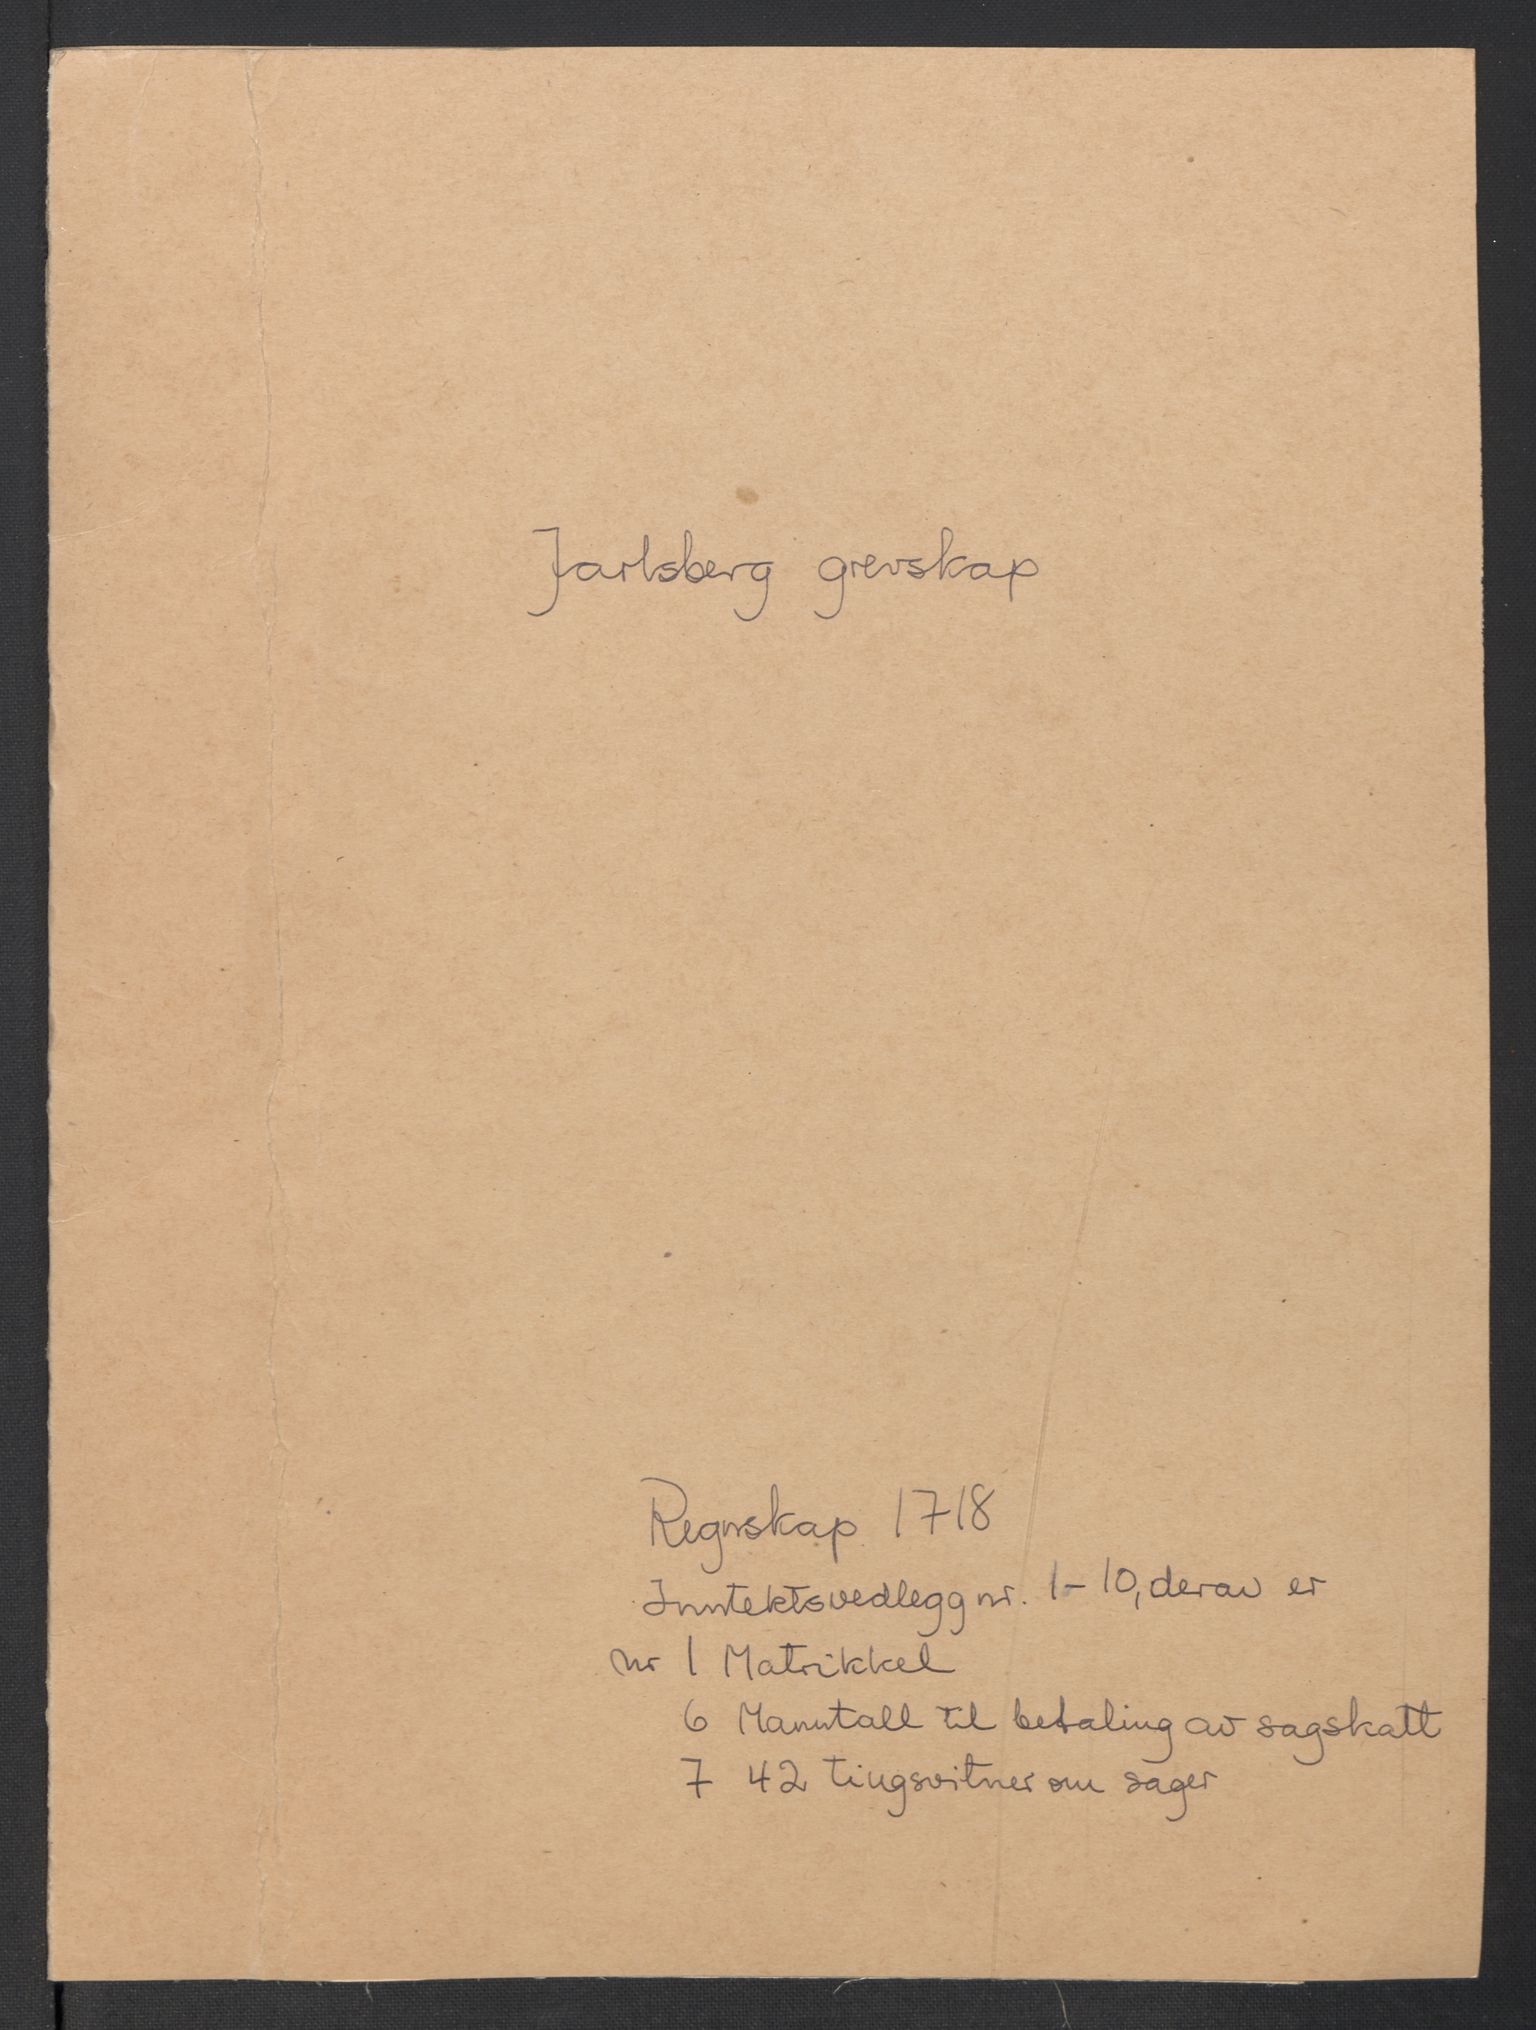 Jarlsberg grevskap
Regnskap 1718
Inntektsvedlegg nr. 1-10, derav er
nr 1 Matrikkel
6 Manntall til betaling av sagskatt
7 42 tingsvitner om sager